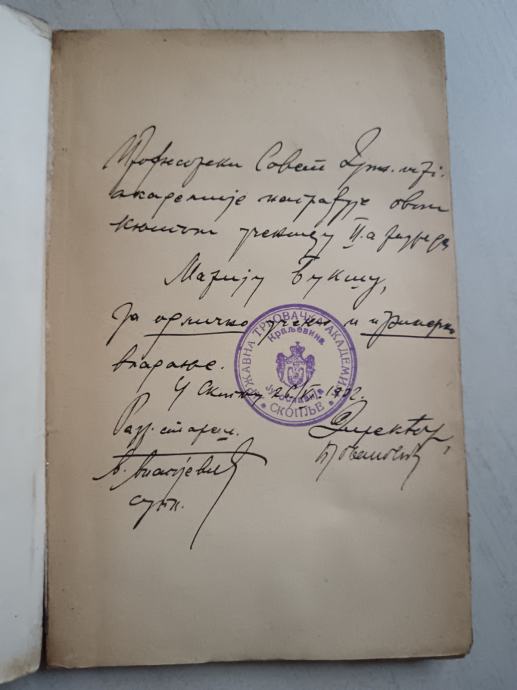 Професорски Савет Држ. трг.
академије награђује овом
књигом ученицу II.а разреда
Марију Букшу,
За одлично учење и примерно
владање.
У Скопљу 26/VI 1932.
ДРЖАВНА ТРГОВАЧКА АКАДЕМИЈА
Краљевина
Југославија
СКОПЉЕ
Разр. стареш. Директор,